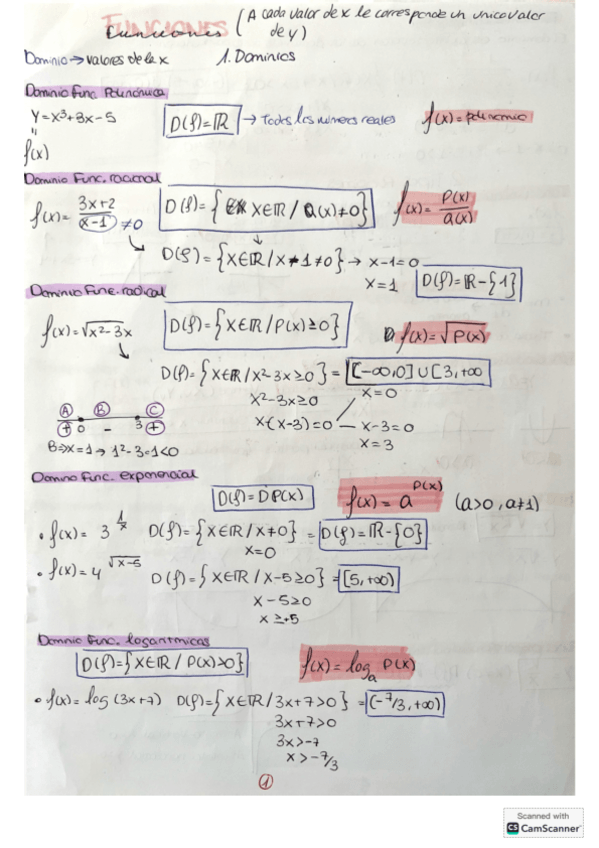 FUNCIONES (A cada valor de x le corresponde un unico valor
Funciones de y)
Dominio → valores de la x 1. Dominios
Dominio Func. Polinómica
Y=x³+8x-5 D(f)=ℝ → Todos los números reales f(x)=polinomio
"
f(x)
Dominio Func. racional
f(x)= 3x+2 / x-1 ≠0 D(f)={ x∈ℝ / Q(x)≠0} f(x)= P(x) / Q(x)
D(f)={x∈ℝ/x-1≠0} → x-1=0
x=1 D(f)=ℝ-{1}
Dominio Func. radical
f(x)=√x²-3x D(f)={x∈ℝ/P(x)≥0} f(x)=√P(x)
D(f)={x∈ℝ/x²-3x≥0} = [-∞,0]∪[3,+∞
x²-3x≥0 x=0
x·(x-3)=0 — x-3=0
x=3
A B C
+ 0 - 3 +
B⇒x=1→1²-3·1<0
Domino Func. exponencial
D(f)=DP(x) f(x)= a^P(x) (a>0, a≠1)
• f(x)= 3^1/x D(f)={x∈ℝ/x≠0} = D(f)=ℝ-{0}
x=0
• f(x)=4^√x-5 D(f)={x∈ℝ/x-5≥0} = [5,+∞)
x-5≥0
x≥+5
Domnio Func. logarítmicas
D(f)={x∈ℝ/P(x)>0} f(x)=logₐ P(x)
• f(x)=log(3x+7) D(f)={x∈ℝ/3x+7>0} = (-7/3,+∞)
3x+7>0
3x>-7
x>-7/3
1
Scanned with
CS CamScanner